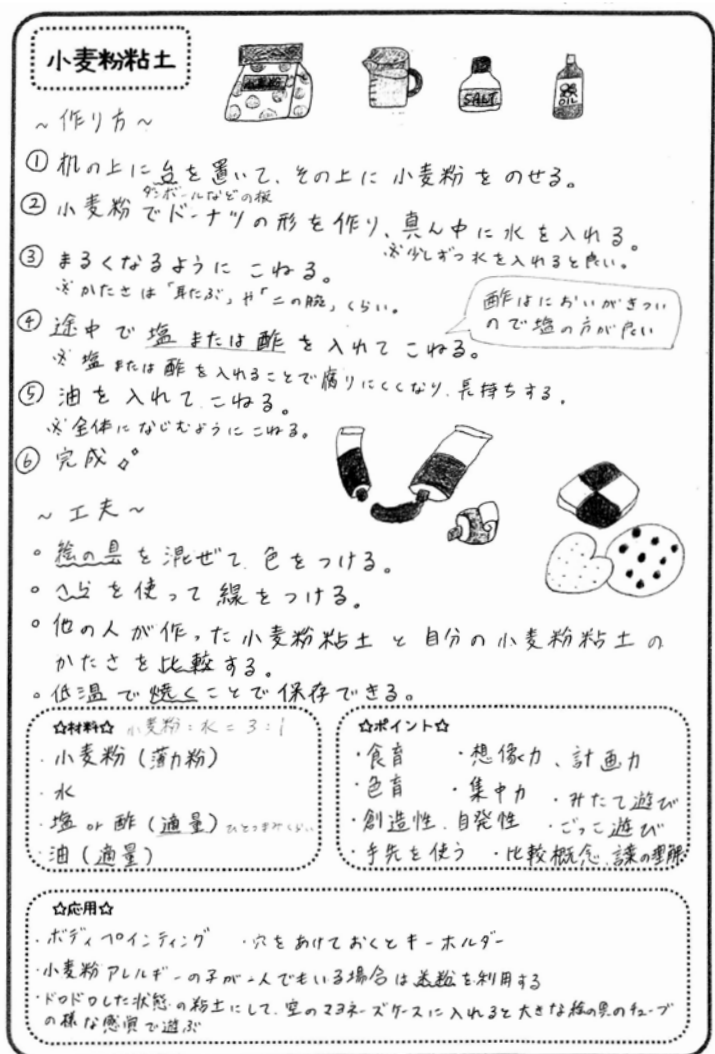 小麦粉粘土
小麦粉
SALT
OIL
~作り方~
① 机の上に台を置いて、その上に小麦粉をのせる。
ダンボールなどの板
② 小麦粉でドーナツの形を作り、真ん中に水を入れる。
※少しずつ水を入れると良い。
③ まるくなるように こねる。
※かたさは「耳たぶ」や「二の腕」くらい。
④ 途中で塩または酢を入れてこねる。
※塩または酢を入れることで腐りにくくなり、長持ちする。
酢はにおいがきつい
ので塩の方が良い
⑤ 油を入れて、こねる。
※全体になじむようにこねる。
⑥ 完成
~工夫~
◦絵の具を混ぜて、色をつける。
◦へらを使って線をつける。
◦他の人が作った小麦粉粘土と自分の小麦粉粘土の
かたさを比較する。
◦低温で焼くことで保存できる。
☆材料☆ 小麦粉:水=3:1
・小麦粉(薄力粉)
・水
・塩or酢(適量)ひとつまみくらい
・油(適量)
☆ポイント☆
・食育 ・想像力、計画力
・色育 ・集中力 ・みたて遊び
・創造性、自発性 ・ごっこ遊び
・手先を使う ・比較概念、言葉の理解
☆応用☆
・ボディペインティング ・穴をあけておくとキーホルダー
・小麦粉アレルギーの子が一人でもいる場合は米粉を利用する
・ドロドロした状態の粘土にして、空のマヨネーズケースに入れると大きな絵の具のチューブ
の様な感覚で遊ぶ